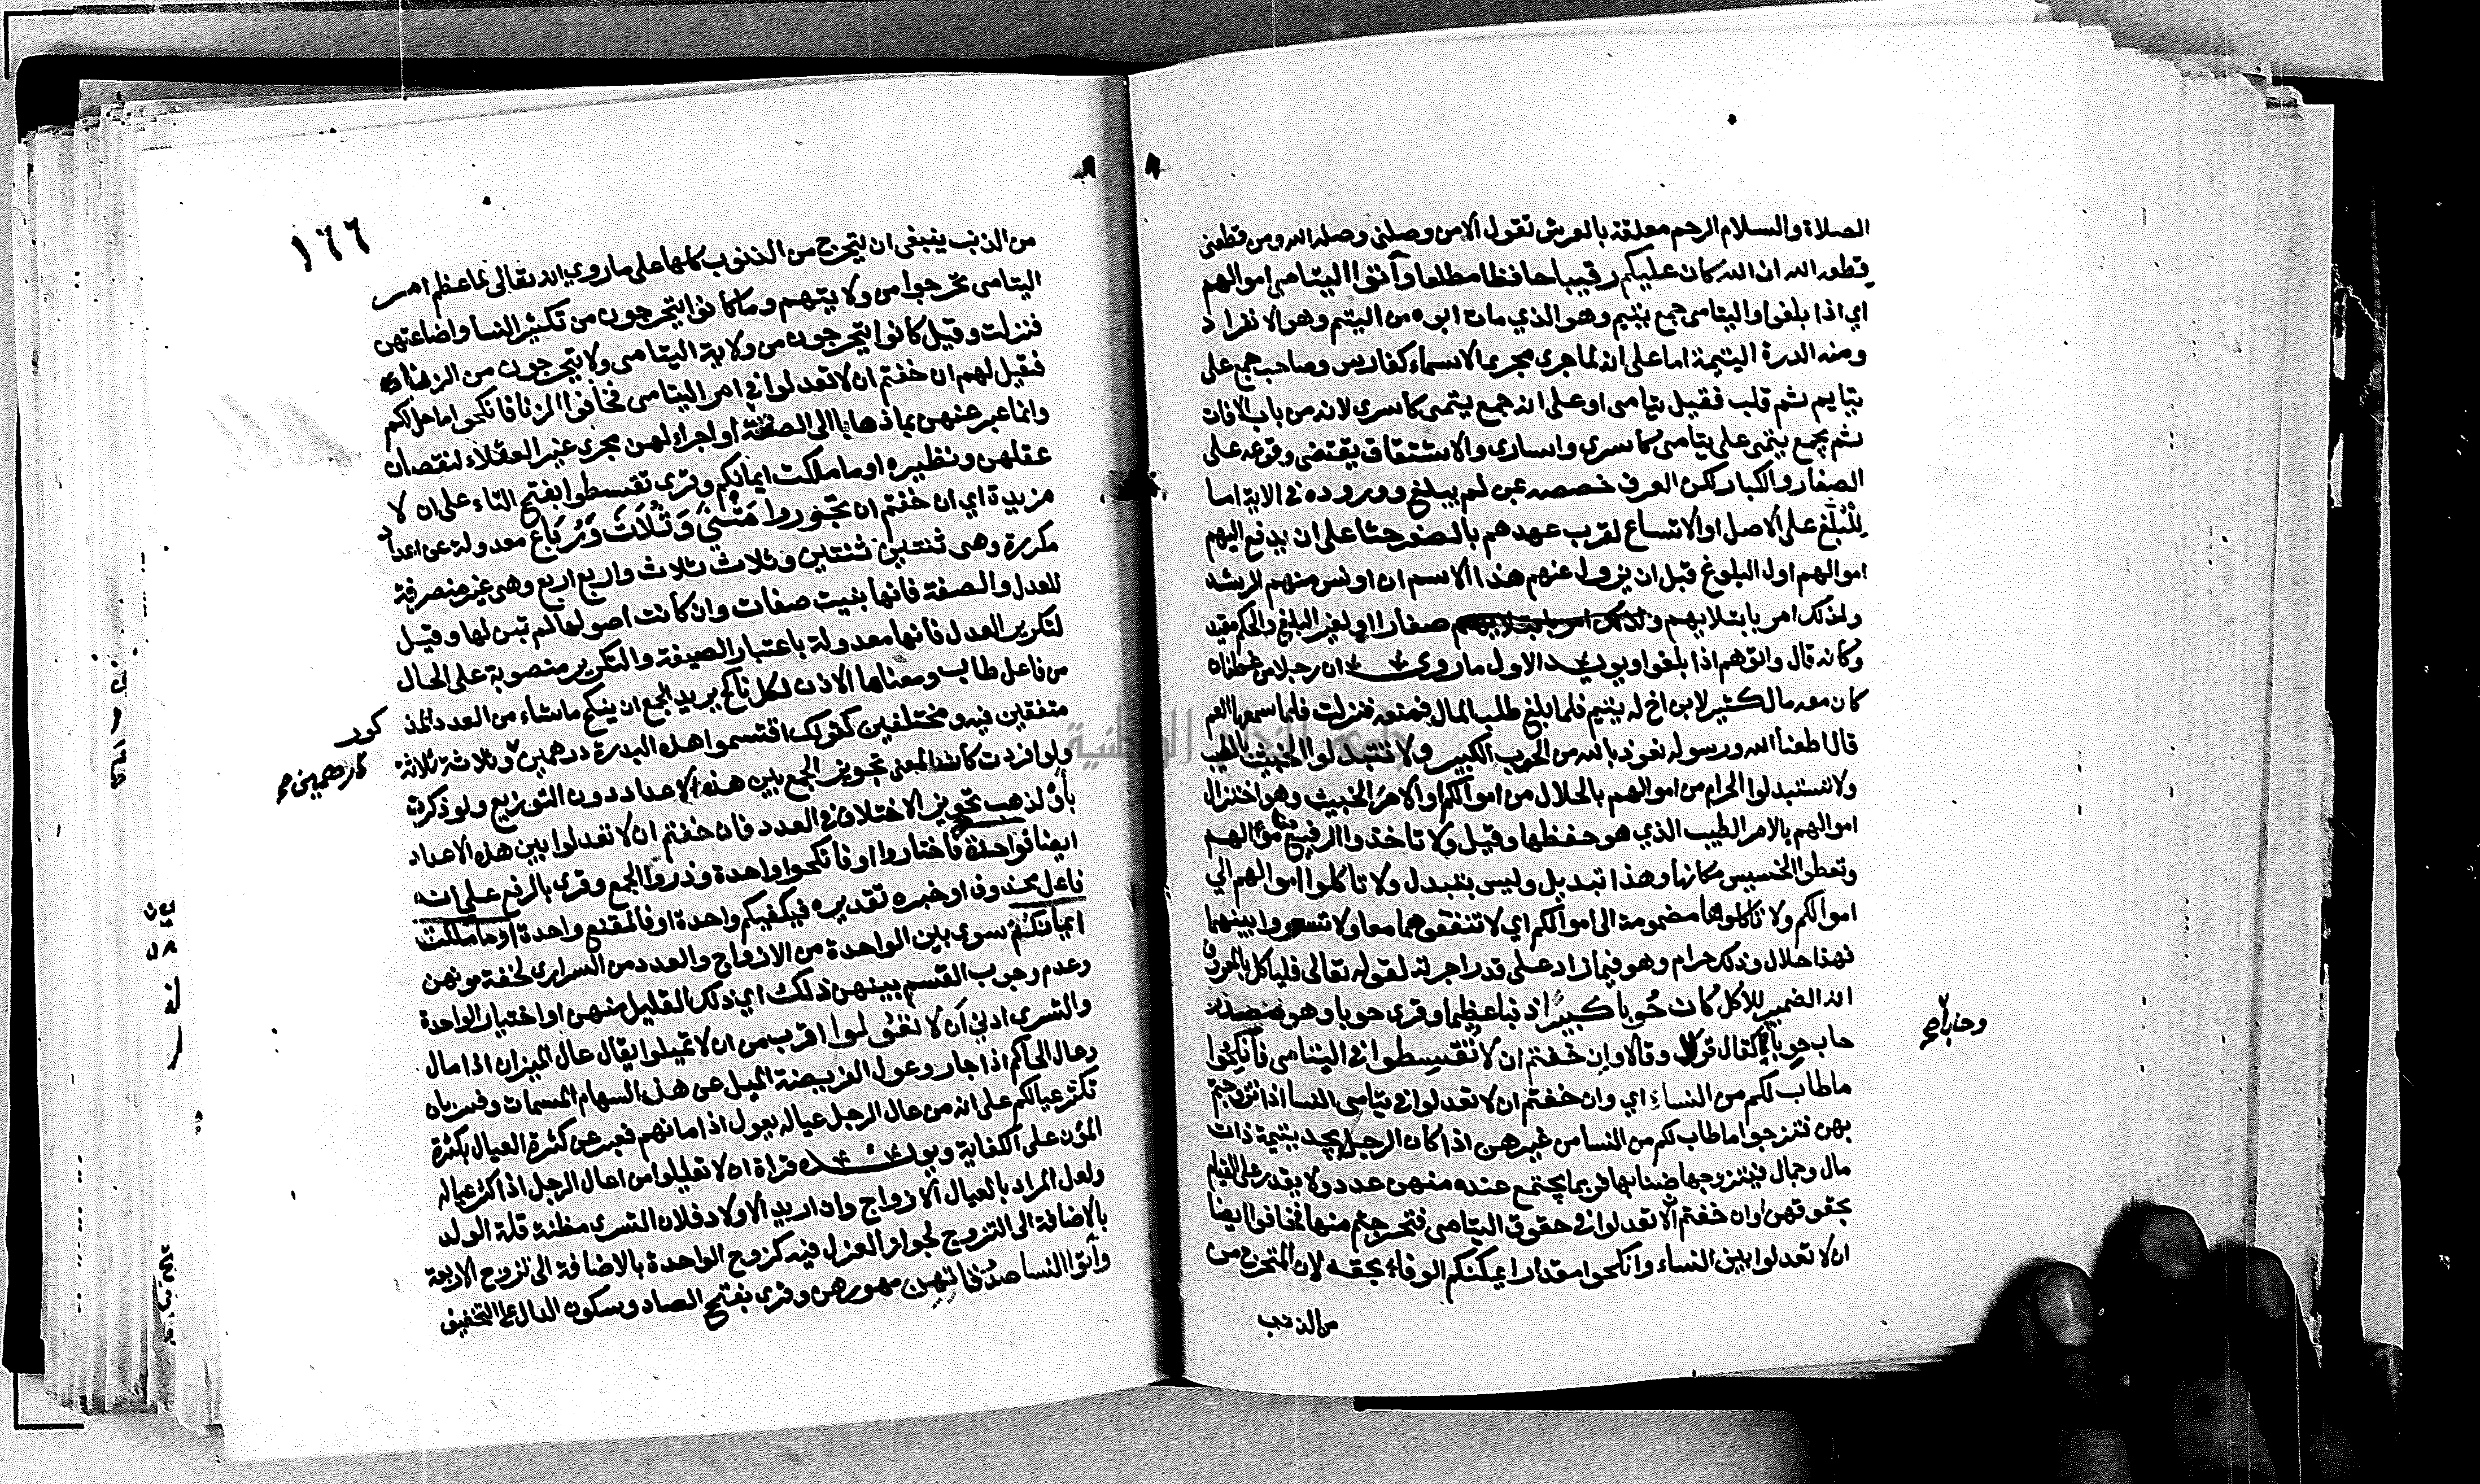 الصلاة والسلام الرحم معلقة بالعرش تقول الا من وصلني وصله الله ومن قطعني
قطعه الله ان الله كان عليكم رقيبا حافظا مطلعا وآتوا اليتامى اموالهم
اي اذا بلغوا واليتامى جمع يتيم وهو الذي مات ابوه من اليتم وهو الانفراد
ومنه الدرة اليتيمة اما على انه لما جرى مجرى الاسماء كفارس وصاحب جمع على
يتايم ثم قلب فقيل يتامى او على انه جمع يتمى كاسرى لانه من باب الافات
ثم جمع يتمى على يتامى كاسرى واسارى والاشتقاق يقتضي وقوعه على
الصغار والكبار لكن العرف خصصه عن لم يبلغ ووروده في الاية اما
للبلغ على الاصل او الاتساع لقرب عهدهم بالصغر حثا على ان يدفع اليهم
اموالهم اول البلوغ قبل ان يزول عنهم هذا الاسم ان اونس منهم الرشد
ولذلك امر بابتلايهم ولذلك امر بابتلايهم صغارا او لغير البلغ والحكم مقيد
وكانه قال واتوهم اذا بلغوا ويويد الاول ما روي ان رجلا من غطفان
كان معه مال كثير لابن اخ له يتيم فلما بلغ طلب المال فمنعه فنزلت فلما سمعها العم
قال اطعنا الله ورسوله نعوذ بالله من الحوب الكبير ولا تتبدلوا الخبيث بالطيب
ولا تستبدلوا الحرام من اموالهم بالحلال من اموالكم او الامر الخبيث وهو اختزال
اموالهم بالامر الطيب الذي هو حفظها وقيل ولا تاخذوا الرفيع من اموالهم
وتعطوا الخسيس مكانها وهذا تبديل وليس بتبدل ولا تاكلوا اموالهم الي
اموالكم ولا تاكلوها مضمومة الى اموالكم اي لا تنفقوهما معا ولا تسووا بينهما
فهذا حلال وذلك حرام وهو فيما زاد على قدر اجره لقوله تعالى فلياكل بالمعروف
انه الضمير للاكل كان حُوبا كبيرًا ذنبا عظيما وقرى حوبا وهو مصدر
حاب حوبا كقال قولا وقالا وان خفتم ان لا تقسطوا في اليتامى فانكحوا
ما طاب لكم من النساء اي وان خفتم ان لا تعدلوا في يتامى النسا اذا تزوجتم
بهن فتزوجوا ما طاب لكم من النسا من غيرهن اذا كان الرجل يجد يتيمة ذات
مال وجمال فيتزوجها ضنا بها فربما يجتمع عنده منهن عدد ولا يقدر على القيام
بحقوقهن او ان خفتم الا تعدلوا في حقوق اليتامى فتحرجتم منها فخافوا ايضا
ان لا تعدلوا بين النساء وانكحوا مقدارا يمكنكم الوفاء بحقه لان المتحرج من
من الذنب
وحابا صح
١٦٦
من الذنب ينبغي ان يتحرج من الذنوب كلها على ما روي انه تعالى لما عظم امر
اليتامى تحرجوا من ولايتهم وما كانوا يتحرجون من تكثير النسا واضاعتهن
فنزلت وقيل كانوا يتحرجون من ولاية اليتامى ولا يتحرجون من الزنا
فقيل لهم ان خفتم ان لا تعدلوا في امر اليتامى فخافوا الزنا فانكحوا ما حل لكم
وانما عبر عنهن بما ذهابا الى الصفة او اجراء لهن مجرى غير العقلاء لنقصان
عقلهن ونظيره او ما ملكت ايمانكم وقرى تقسطوا بفتح التاء على ان لا
مزيدة اي ان خفتم ان تجوروا مَثْنَى وَثُلَاثَ وَرُبَاعَ معدولة عن اعداد
مكررة وهى ثنتين ثنتين وثلاث ثلاث واربع اربع وهى غير منصرفة
للعدل والصفة فانها بنيت صفات وان كانت اصولها لم تبن لها وقيل
لتكرير العدل فانها معدولة باعتبار الصيغة والتكرير منصوبة على الحال
من فاعل طاب ومعناها الاذن لكل ناكح يريد الجمع ان ينكح ما شاء من العدد المذ
كور
متفقين فيه ومختلفين كقولك اقتسموا هذه البدرة درهمين وثلاثة ثلاثة
درهمين صح
ولو افردت كان المعنى تجويز الجمع بين هذه الاعداد دون التوزيع ولو ذكرت
بأو لذهب تجويز الاختلاف في العدد فان خفتم ان لا تعدلوا بين هذه الاعداد
ايضا فواحدة فاختاروا او فانكحوا واحدة وذروا الجمع وقرى بالرفع على انه
فاعل محذوف او خبره تقديره فيكفيكم واحدة او فالمقنع واحدة او ما ملكت
ايمانكم سوى بين الواحدة من الازواج والعدد من السراري لخفة مونهن
وعدم وجوب القسم بينهن ذلك اي ذلك القليل منهن او اختيار الواحدة
والتسري ادنى ان لا تعولوا اقرب من ان لا تميلوا يقال عال الميزان اذا مال
وعال الحاكم اذا جار وعول الفريضة الميل عن هذه السهام المسمات وفسر بان
تكثر عيالكم على انه من عال الرجل عياله يعول اذا مانهم فعبر عن كثرة العيال بكثرة
المؤن على الكفاية ويويده قراة ان لا تعيلوا من اعال الرجل اذا كثر عياله
ولعل المراد بالعيال الازواج وان اريد الاولاد فلان التسري مظنة قلة الولد
بالاضافة الى التزوج لجواز العزل فيه كزوج الواحدة بالاضافة الى تزوج الاربعة
وآتوا النسا صدقاتهن مهورهن وقرى بفتح الصاد وسكون الدال على التخفيف
جامعة النجاح الوطنية